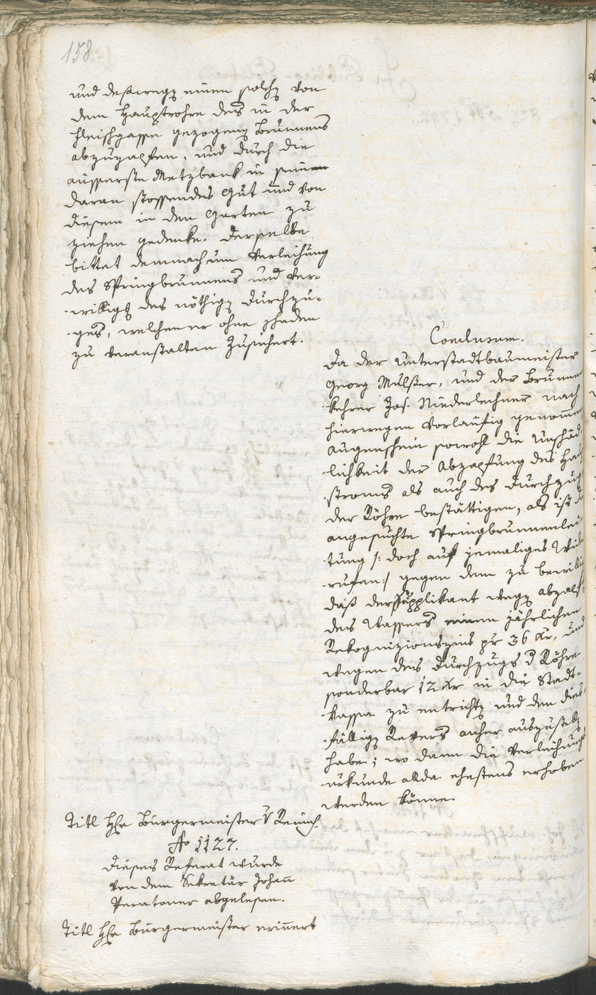 158
und deßwegen einen solchen von
dem Hauptrohre des in der
Fleischgasse gezogenen Brunnens
abzuzapfen, und durch die
äusserste Metzbank in seinem
daran stossendes Gut und von
diesem in den Garten zu
ziehen gedenke. Derselbe
bittet demnach um Verleihung
des Springbrunnens und Ver-
willigung des nöthigen Durchzu-
ges, welchen er ohne Schaden
zu veranstalten zusichert.
Conclusum.
Da der Unterstadtbaumeister
Georg Mulser, und der Brunnen
kehrer Jos. Niederlechner nach
hierwegen vorläufig genommen
Augenschein sowohl die Unschäd
lichkeit der Abzapfung des
stroms als auch des Durchzugs
der Röhre bestättigen, als ist
angesuchte Springbrunnenlei
tung /: doch auf jemaliges Wider
rufen :/ gegen dem zu bewil
daß der Supplikant wegen
des Wassers einen jährlichen
Rekognizionszins pr 36 Kr, und
wegen des Durchzugs d Röhre
sonderbar 12 Kr in die Stadt
kassa zu entrichten und den dies
fälligen Revers anher auszustellen
habe; wo dann die Verleihung
urkunde alda ehestens erhoben
werden könne.
Titl Hr Bürgermeister
No 1127.
Dieses Referat wurde
von dem Sekretär Johann
abgelesen.
Titl Hr Bürgermeister erinnert